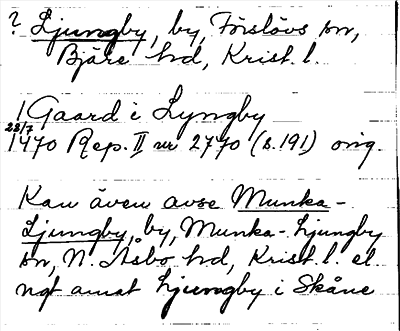 ? Ljungby, by, Förslövs sn,
Bjäre hd, Krist. l.
1 Gaard i Lyngby
23/7
1470 Rep. II nr 2770 (s. 191) orig.
Kan även avse Munka-
Ljungby, by, Munka-Ljungby
sn, N. Åsbo hd, Krist. l. el.
ngt annat Ljungby i Skåne